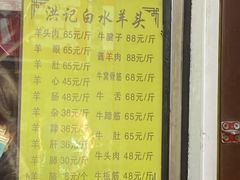 洪记白水羊头
羊头肉 65元/斤 牛腱子 88元/斤
羊眼 65元/斤 酱羊肉 88元/斤
羊肚 65元/斤
羊心 45元/斤 牛窝骨筋 68元/斤
羊肠 48元/斤 牛舌 68元/斤
羊杂 38元/斤 牛蹄筋 65元/斤
羊蹄 38元/斤 牛肚 65元/斤
羊肝 36元/斤 牛头肉 48元/斤
30元/斤 牛板筋 48元/斤